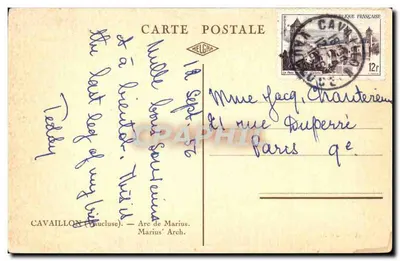 CARTE POSTALE
HELCHA
12 Sept. 56
Mille bons souvenirs
et à bientôt. This is
the last leg of my trip
Teddy
REPUBLIQUE FRANÇAISE
12F
CAVA
VAUCLUSE
Mme Jacq. Chantereau
21 rue Duperré
Paris 9e
CAVAILLON (Vaucluse). — Arc de Marius.
Marius' Arch.
CPARHIPH